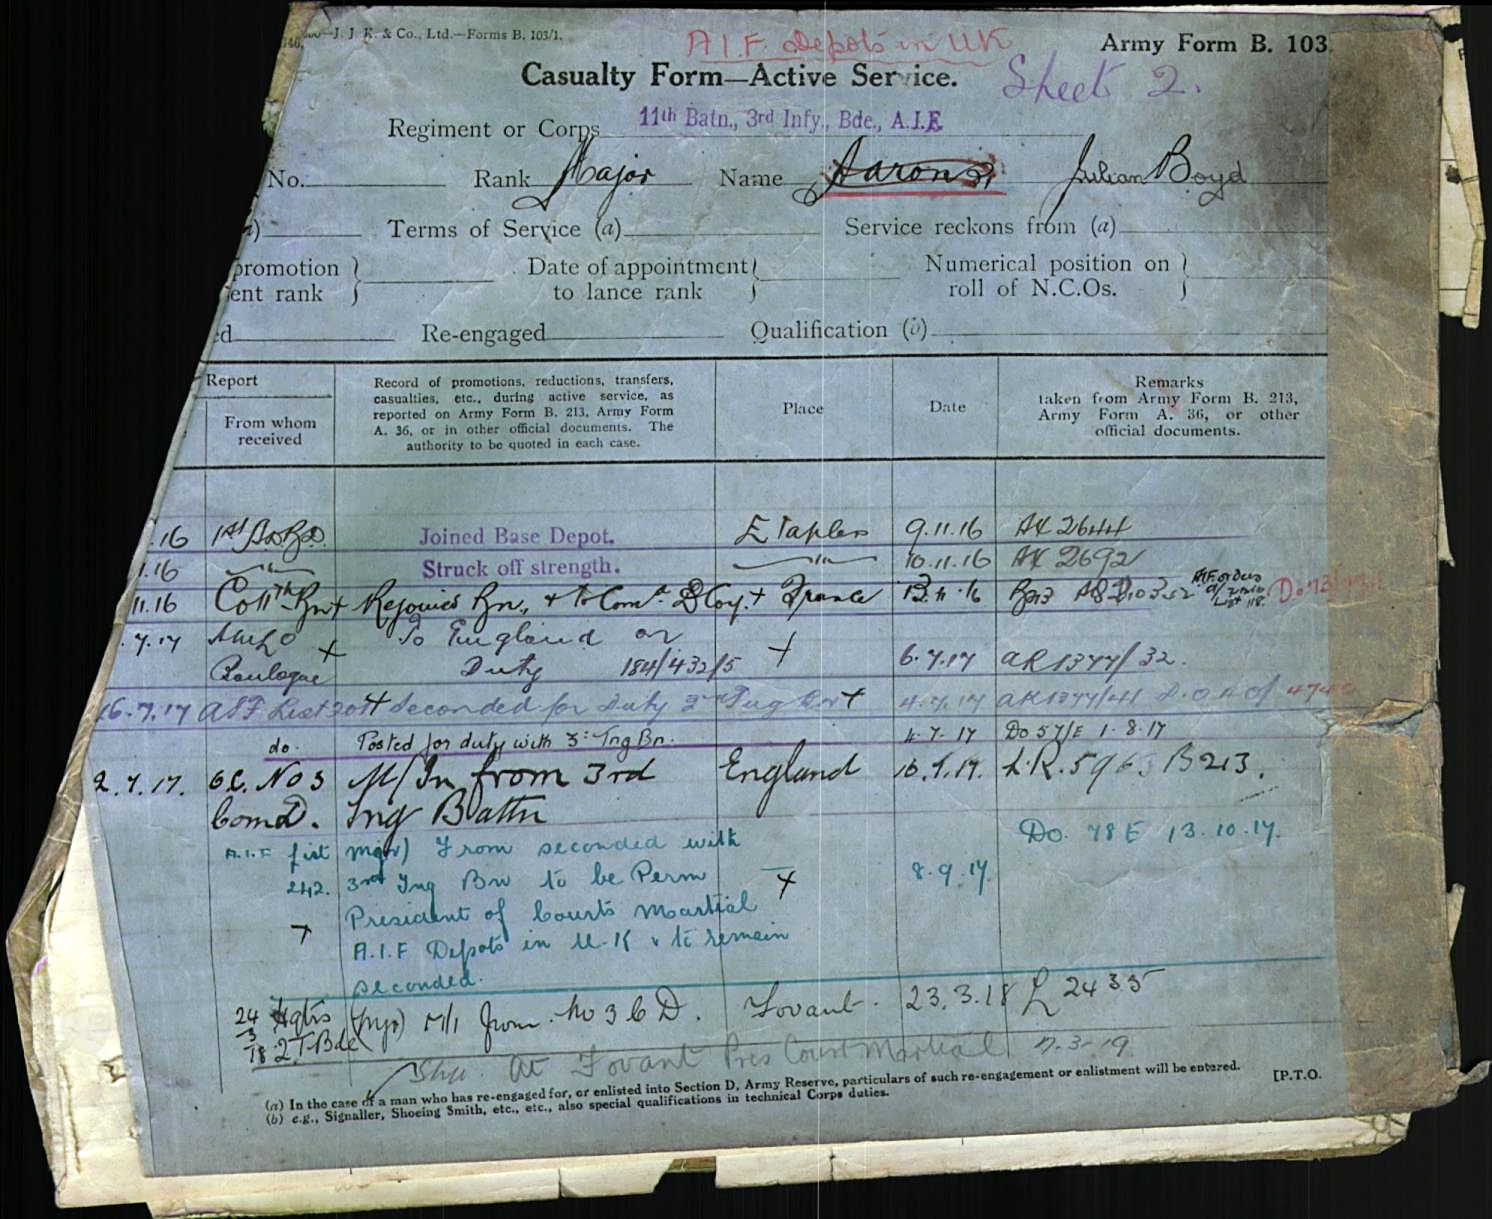 J. J. K. & Co., Ltd.—Forms B. 103/1.
A.I.F. Depots in UK
Army Form B. 103
Casualty Form—Active Service.
Sheet 2.
Regiment or Corps 11th Batn., 3rd Infy., Bde., A.I.F.
No. Rank Major Name Aarons Julian Boyd
Terms of Service (a) Service reckons from (a)
promotion Date of appointment Numerical position on
ent rank to lance rank roll of N.C.Os.
ed Re-engaged Qualification (b)
Report
From whom received
Record of promotions, reductions, transfers,
casualties, etc., during active service, as
reported on Army Form B. 213, Army Form
A. 36, or in other official documents. The
authority to be quoted in each case.
Place
Date
Remarks
taken from Army Form B. 213,
Army Form A. 36, or other
official documents.
.16 1st Joined Base Depot. Etaples 9.11.16 2644
1.16 Struck off strength. 10.11.16 2692
11.16 Co 11th Bn Rejoined Bn., + to Com. D Coy. France 11.16
.7.17 To England on
Boulogne Duty 184/432/5 6.7.17 AR1377/32.
16.7.17 AIF List Seconded for duty Tng Bn 4.7.17
do. Posted for duty with 3rd Tng Bn. 4.7.17 Do 57/E 1.8.17
2.7.17. O.C. No 3 M/In from 3rd England B213.
Comd. Tng Battn
A.I.F list (Major) From seconded with Do. 78E 13.10.17.
242. 3rd Tng Bn to be Perm 8.9.17.
President of Courts Martial
A.I.F Depots in U.K & to remain
seconded.
24 Hqtrs M/I from No 3 C D. Fovant. 23.3.18 L 2435
3
18 2 T Bde
At Fovant Pres Court Martial 7-3-19
(a) In the case of a man who has re-engaged for, or enlisted into Section D, Army Reserve, particulars of such re-engagement or enlistment will be entered.
(b) e.g., Signaller, Shoeing Smith, etc., etc., also special qualifications in technical Corps duties.
[P.T.O.